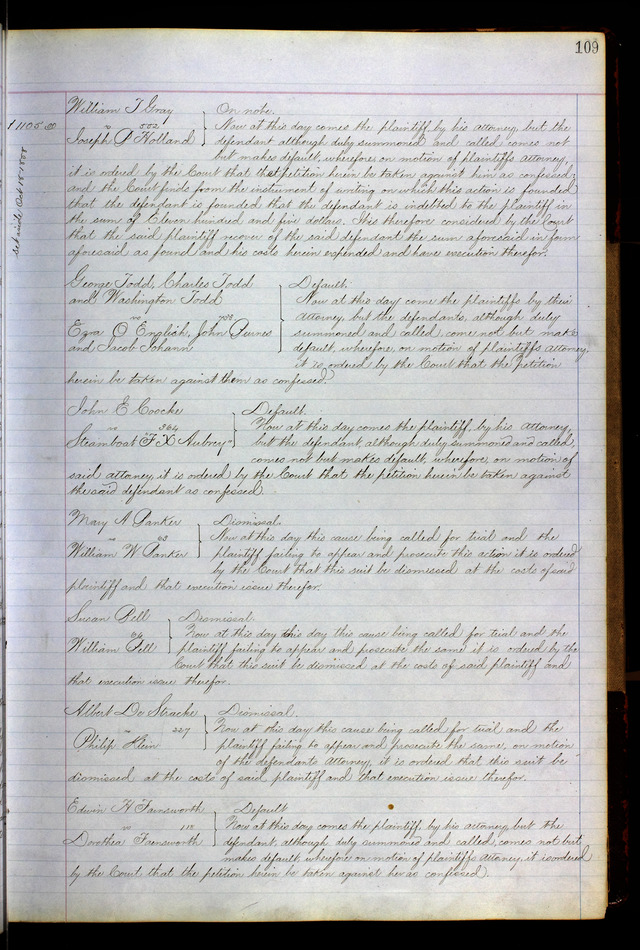 109
William T Gray On note.
$1105.00 vs 552 Now at this day comes the plaintiff by his attorney, but the
Joseph P Holland defendant although duly summoned and called comes not
but makes default, wherefore, on motion of plaintiffs attorney,
it is ordered by the Court that the petition herein be taken against him as confessed;
and the Court finds from the instrument of writing on which this action is founded
that the defendant is founded that the defendant is indebted to the plaintiff in
the sum of Eleven hundred and five dollars. It is therefore considered by the Court
that the said plaintiff recover of the said defendant the sum aforesaid in form
aforesaid as found and his costs herein expended and have execution therefor.
Set aside Oct 18 1858
George Todd, Charles Todd Default.
and Washington Todd Now at this day come the plaintiffs by their
vs 733 attorney, but the defendants, although duly
Ezra O English, John Purnes summoned and called, come not but make
and Jacob Johann default, wherefore, on motion of plaintiffs attorney,
it is ordered by the Court that the petition
herein be taken against them as confessed.
John E Coocke Default.
vs 364 Now at this day comes the plaintiff, by his attorney,
Steamboat "F X Aubrey" but the defendant, although duly summoned and called,
comes not but makes default, wherefore, on motion of
said attorney, it is ordered by the Court that the petition herein be taken against
the said defendant as confessed.
Mary A Panker Dismissal.
vs 63 Now at this day this cause being called for trial and the
William W Panker plaintiff failing to appear and prosecute this action it is ordered
by the Court that this suit be dismissed at the costs of said
plaintiff and that execution issue therefor.
Susan Pell Dismissal.
64 Now at this day this day this cause being called for trial and the
William Pell plaintiff failing to appear and prosecute the same it is ordered by the
Court that this suit be dismissed at the costs of said plaintiff and
that execution issue therefor.
Albert De Stracke Dismissal.
vs 227 Now at this day this cause being called for trial and the
Philip Klein plaintiff failing to appear and prosecute the same, on motion
of the defendants attorney, it is ordered that this suit be
dismissed at the costs of said plaintiff and that execution issue therefor.
Edwin H Farnsworth Default
vs 118 Now at this day comes the plaintiff, by his attorney, but the
Dorothea Farnsworth defendant, although duly summoned and called, comes not but
makes default, wherefore on motion of plaintiffs attorney, it is ordered
by the Court, that the petition herein be taken against her as confessed.